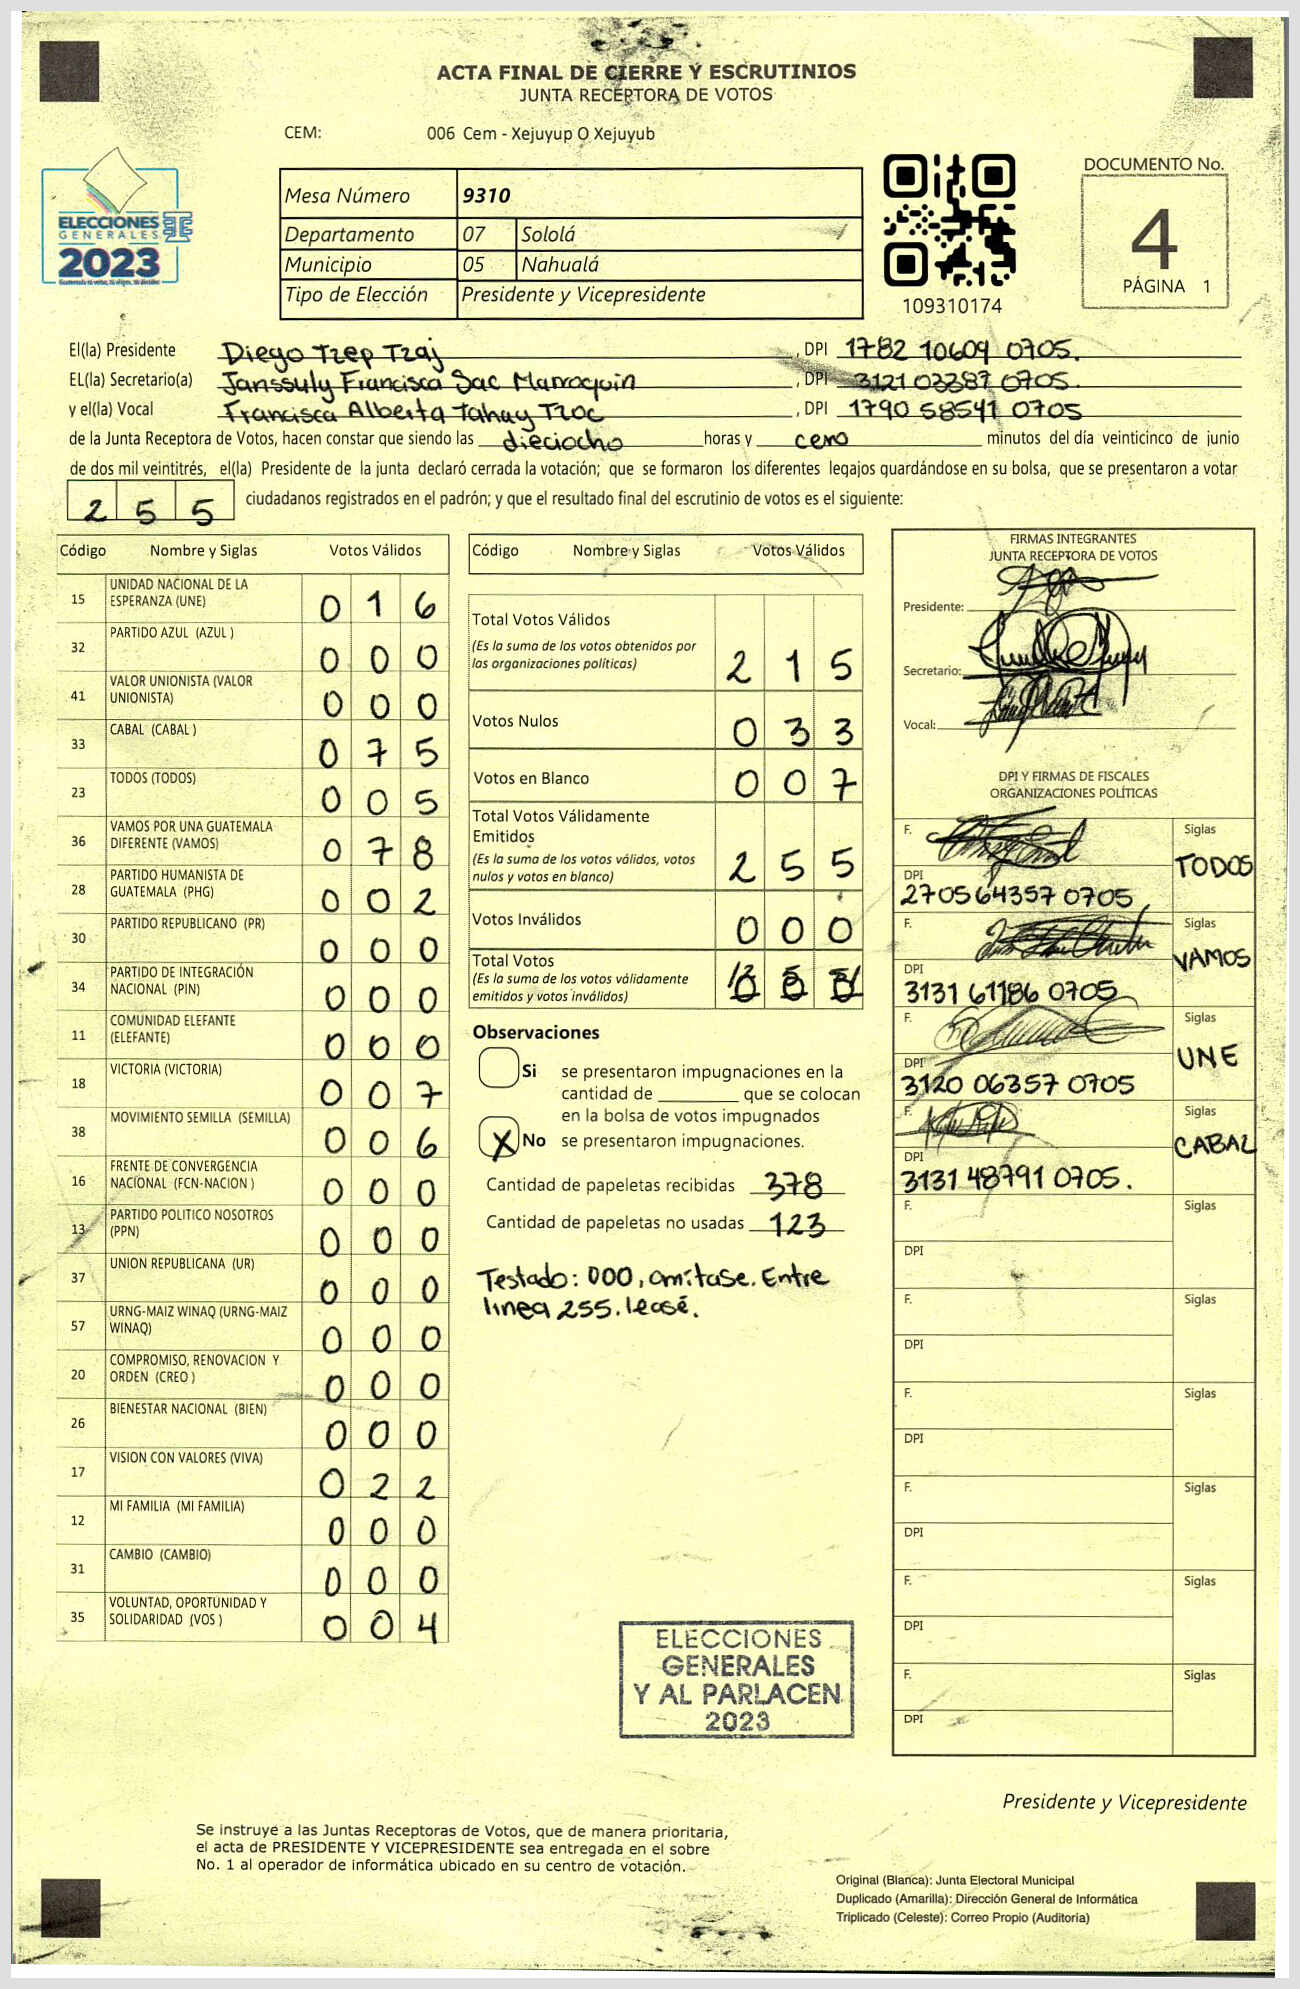 ACTA FINAL DE CIERRE Y ESCRUTINIOS
JUNTA RECEPTORA DE VOTOS
CEM: 006 Cem - Xejuyup O Xejuyub
ELECCIONES
GENERALES
2023
Mesa Número 9310
Departamento 07 Sololá
Municipio 05 Nahualá
Tipo de Elección Presidente y Vicepresidente
109310174
DOCUMENTO No.
4
PÁGINA 1
El(la) Presidente Diego Tzep Tzaj, DPI 1782 10609 0705.
EL(la) Secretario(a) Janssuly Francisca Sac Marroquin, DPI 3121 03387 0705.
y el(la) Vocal Francisca Alberta Tahay Tzoc, DPI 1790 58541 0705
de la Junta Receptora de Votos, hacen constar que siendo las dieciocho horas y cero minutos del día veinticinco de junio
de dos mil veintitrés, el(la) Presidente de la junta declaró cerrada la votación; que se formaron los diferentes legajos guardándose en su bolsa, que se presentaron a votar
255 ciudadanos registrados en el padrón; y que el resultado final del escrutinio de votos es el siguiente:
Código Nombre y Siglas Votos Válidos
15 UNIDAD NACIONAL DE LA ESPERANZA (UNE) 016
32 PARTIDO AZUL (AZUL ) 000
41 VALOR UNIONISTA (VALOR UNIONISTA) 000
33 CABAL (CABAL ) 075
23 TODOS (TODOS) 005
36 VAMOS POR UNA GUATEMALA DIFERENTE (VAMOS) 078
28 PARTIDO HUMANISTA DE GUATEMALA (PHG) 002
30 PARTIDO REPUBLICANO (PR) 000
34 PARTIDO DE INTEGRACIÓN NACIONAL (PIN) 000
11 COMUNIDAD ELEFANTE (ELEFANTE) 000
18 VICTORIA (VICTORIA) 007
38 MOVIMIENTO SEMILLA (SEMILLA) 006
16 FRENTE DE CONVERGENCIA NACIONAL (FCN-NACION ) 000
13 PARTIDO POLITICO NOSOTROS (PPN) 000
37 UNION REPUBLICANA (UR) 000
57 URNG-MAIZ WINAQ (URNG-MAIZ WINAQ) 000
20 COMPROMISO, RENOVACION Y ORDEN (CREO ) 000
26 BIENESTAR NACIONAL (BIEN) 000
17 VISION CON VALORES (VIVA) 022
12 MI FAMILIA (MI FAMILIA) 000
31 CAMBIO (CAMBIO) 000
35 VOLUNTAD, OPORTUNIDAD Y SOLIDARIDAD (VOS ) 004
Código Nombre y Siglas Votos Válidos
Total Votos Válidos
(Es la suma de los votos obtenidos por
las organizaciones políticas) 215
Votos Nulos 033
Votos en Blanco 007
Total Votos Válidamente
Emitidos
(Es la suma de los votos válidos, votos
nulos y votos en blanco) 255
Votos Inválidos 000
Total Votos
(Es la suma de los votos válidamente
emitidos y votos inválidos)
Observaciones
Si se presentaron impugnaciones en la
cantidad de ________ que se colocan
en la bolsa de votos impugnados
X No se presentaron impugnaciones.
Cantidad de papeletas recibidas 378
Cantidad de papeletas no usadas 123
Testado: 000, omítase. Entre
linea 255. leasé.
ELECCIONES
GENERALES
Y AL PARLACEN
2023
FIRMAS INTEGRANTES
JUNTA RECEPTORA DE VOTOS
Presidente:
Secretario:
Vocal:
DPI Y FIRMAS DE FISCALES
ORGANIZACIONES POLÍTICAS
F. Siglas
TODOS
DPI
2705 64357 0705
F. Siglas
VAMOS
DPI
3131 61186 0705
F. Siglas
UNE
DPI
3120 06357 0705
F. Siglas
CABAL
DPI
3131 48791 0705.
F. Siglas
DPI
F. Siglas
DPI
F. Siglas
DPI
F. Siglas
DPI
F. Siglas
DPI
F. Siglas
DPI
Presidente y Vicepresidente
Se instruye a las Juntas Receptoras de Votos, que de manera prioritaria,
el acta de PRESIDENTE Y VICEPRESIDENTE sea entregada en el sobre
No. 1 al operador de informática ubicado en su centro de votación.
Original (Blanca): Junta Electoral Municipal
Duplicado (Amarilla): Dirección General de Informática
Triplicado (Celeste): Correo Propio (Auditoría)